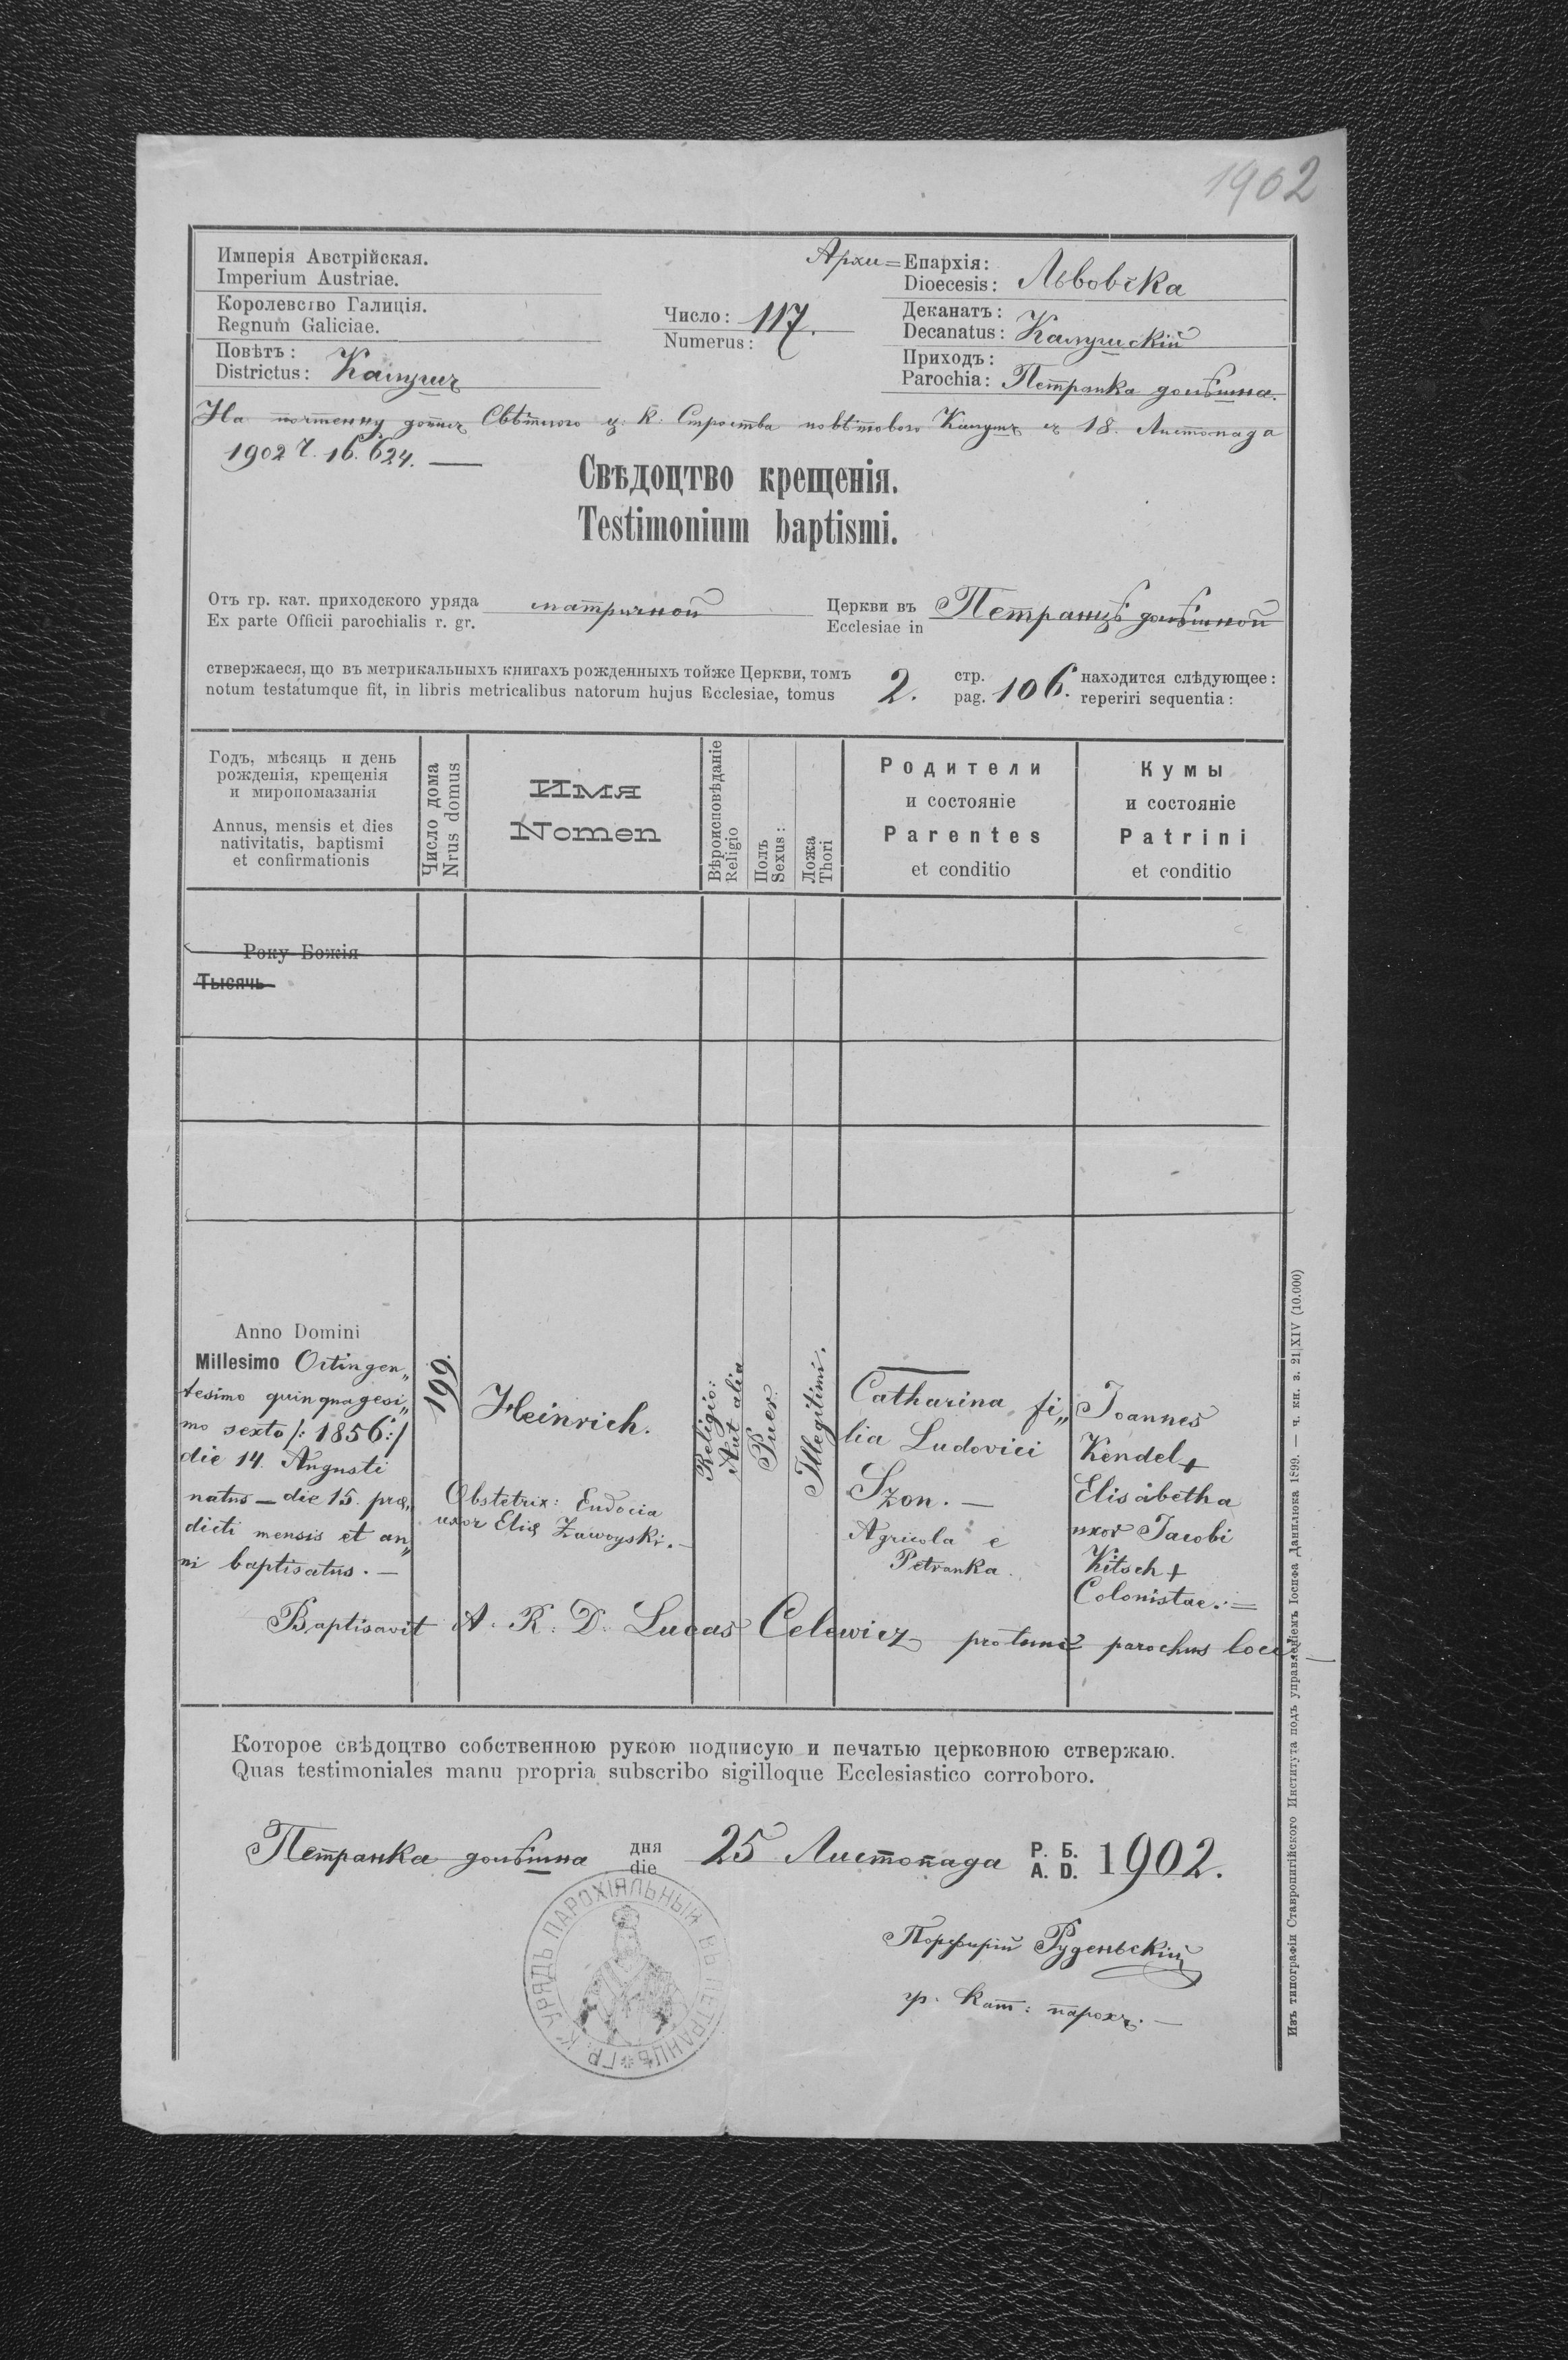 1902
Имперія Австрійская.
Imperium Austriae.
Королевство Галиція.
Regnum Galiciae.
Повѣтъ:
Districtus: Калушъ
Число:
Numerus: 117.
Архи=Епархія:
Dioecesis: Львовска
Деканатъ:
Decanatus: Калушскій
Приходъ:
Parochia: Петранка долѣшна.
На почтенну допись Свѣтлого ц. к. Староства повѣтового Калушъ съ 18. Листопада
1902 Ч. 16.624. —
Свѣдоцтво крещенія.
Testimonium baptismi.
Отъ гр. кат. приходского уряда матричной Церкви въ Петранцѣ долѣшной
Ex parte Officii parochialis r. gr. Ecclesiae in
ствержаеся, що въ метрикальныхъ книгахъ рожденныхъ тойже Церкви, томъ 2. стр. 106. находится слѣдующее:
notum testatumque fit, in libris metricalibus natorum hujus Ecclesiae, tomus pag. reperiri sequentia:
Годъ, мѣсяць и день
рожденія, крещенія
и миропомазанія
Annus, mensis et dies
nativitatis, baptismi
et confirmationis
Число дома
Nrus domus
Имя
Nomen
Вѣроисповѣданіе
Religio
Полъ
Sexus:
Ложа
Thori
Родители
и состояніе
Parentes
et conditio
Кумы
и состояніе
Patrini
et conditio
Року Божія
Тысячь
Anno Domini
Millesimo Octingen„
tesimo quinquagesi„
mo sexto /: 1856:/
die 14. Augusti
natus — die 15. prae„
dicti mensis et an„
ni baptisatus. —
199.
Heinrich.
Obstetrix: Eudocia
uxor Eliae Zawoyski. —
Religio:
Aut alia
Puer.
Illegitimi.
Catharina fi„
lia Ludovici
Szon. —
Agricola e
Petranka.
Joannes
Kendel +
Elisabetha
uxor Jacobi
Kitsch +
Colonistae. =
Baptisavit A. R. D. Lucas Celewicz pro tunc parochus loci. —
Которое свѣдоцтво собственною рукою подписую и печатью церковною ствержаю.
Quas testimoniales manu propria subscribo sigilloque Ecclesiastico corroboro.
Петранка долѣшна дня 25 Листопада Р. Б. 1902.
die A. D.
Порфирій Руденьскій
гр. кат: парохъ. —
ГР. К. УРЯДЪ ПАРОХІЯЛЬНЫЙ ВЪ ПЕТРАНЦѢ
Изъ типографіи Ставропигійского Института подъ управленіемъ Іосифа Данилюка 1899. — ч. кн. з. 21/XIV (10.000)